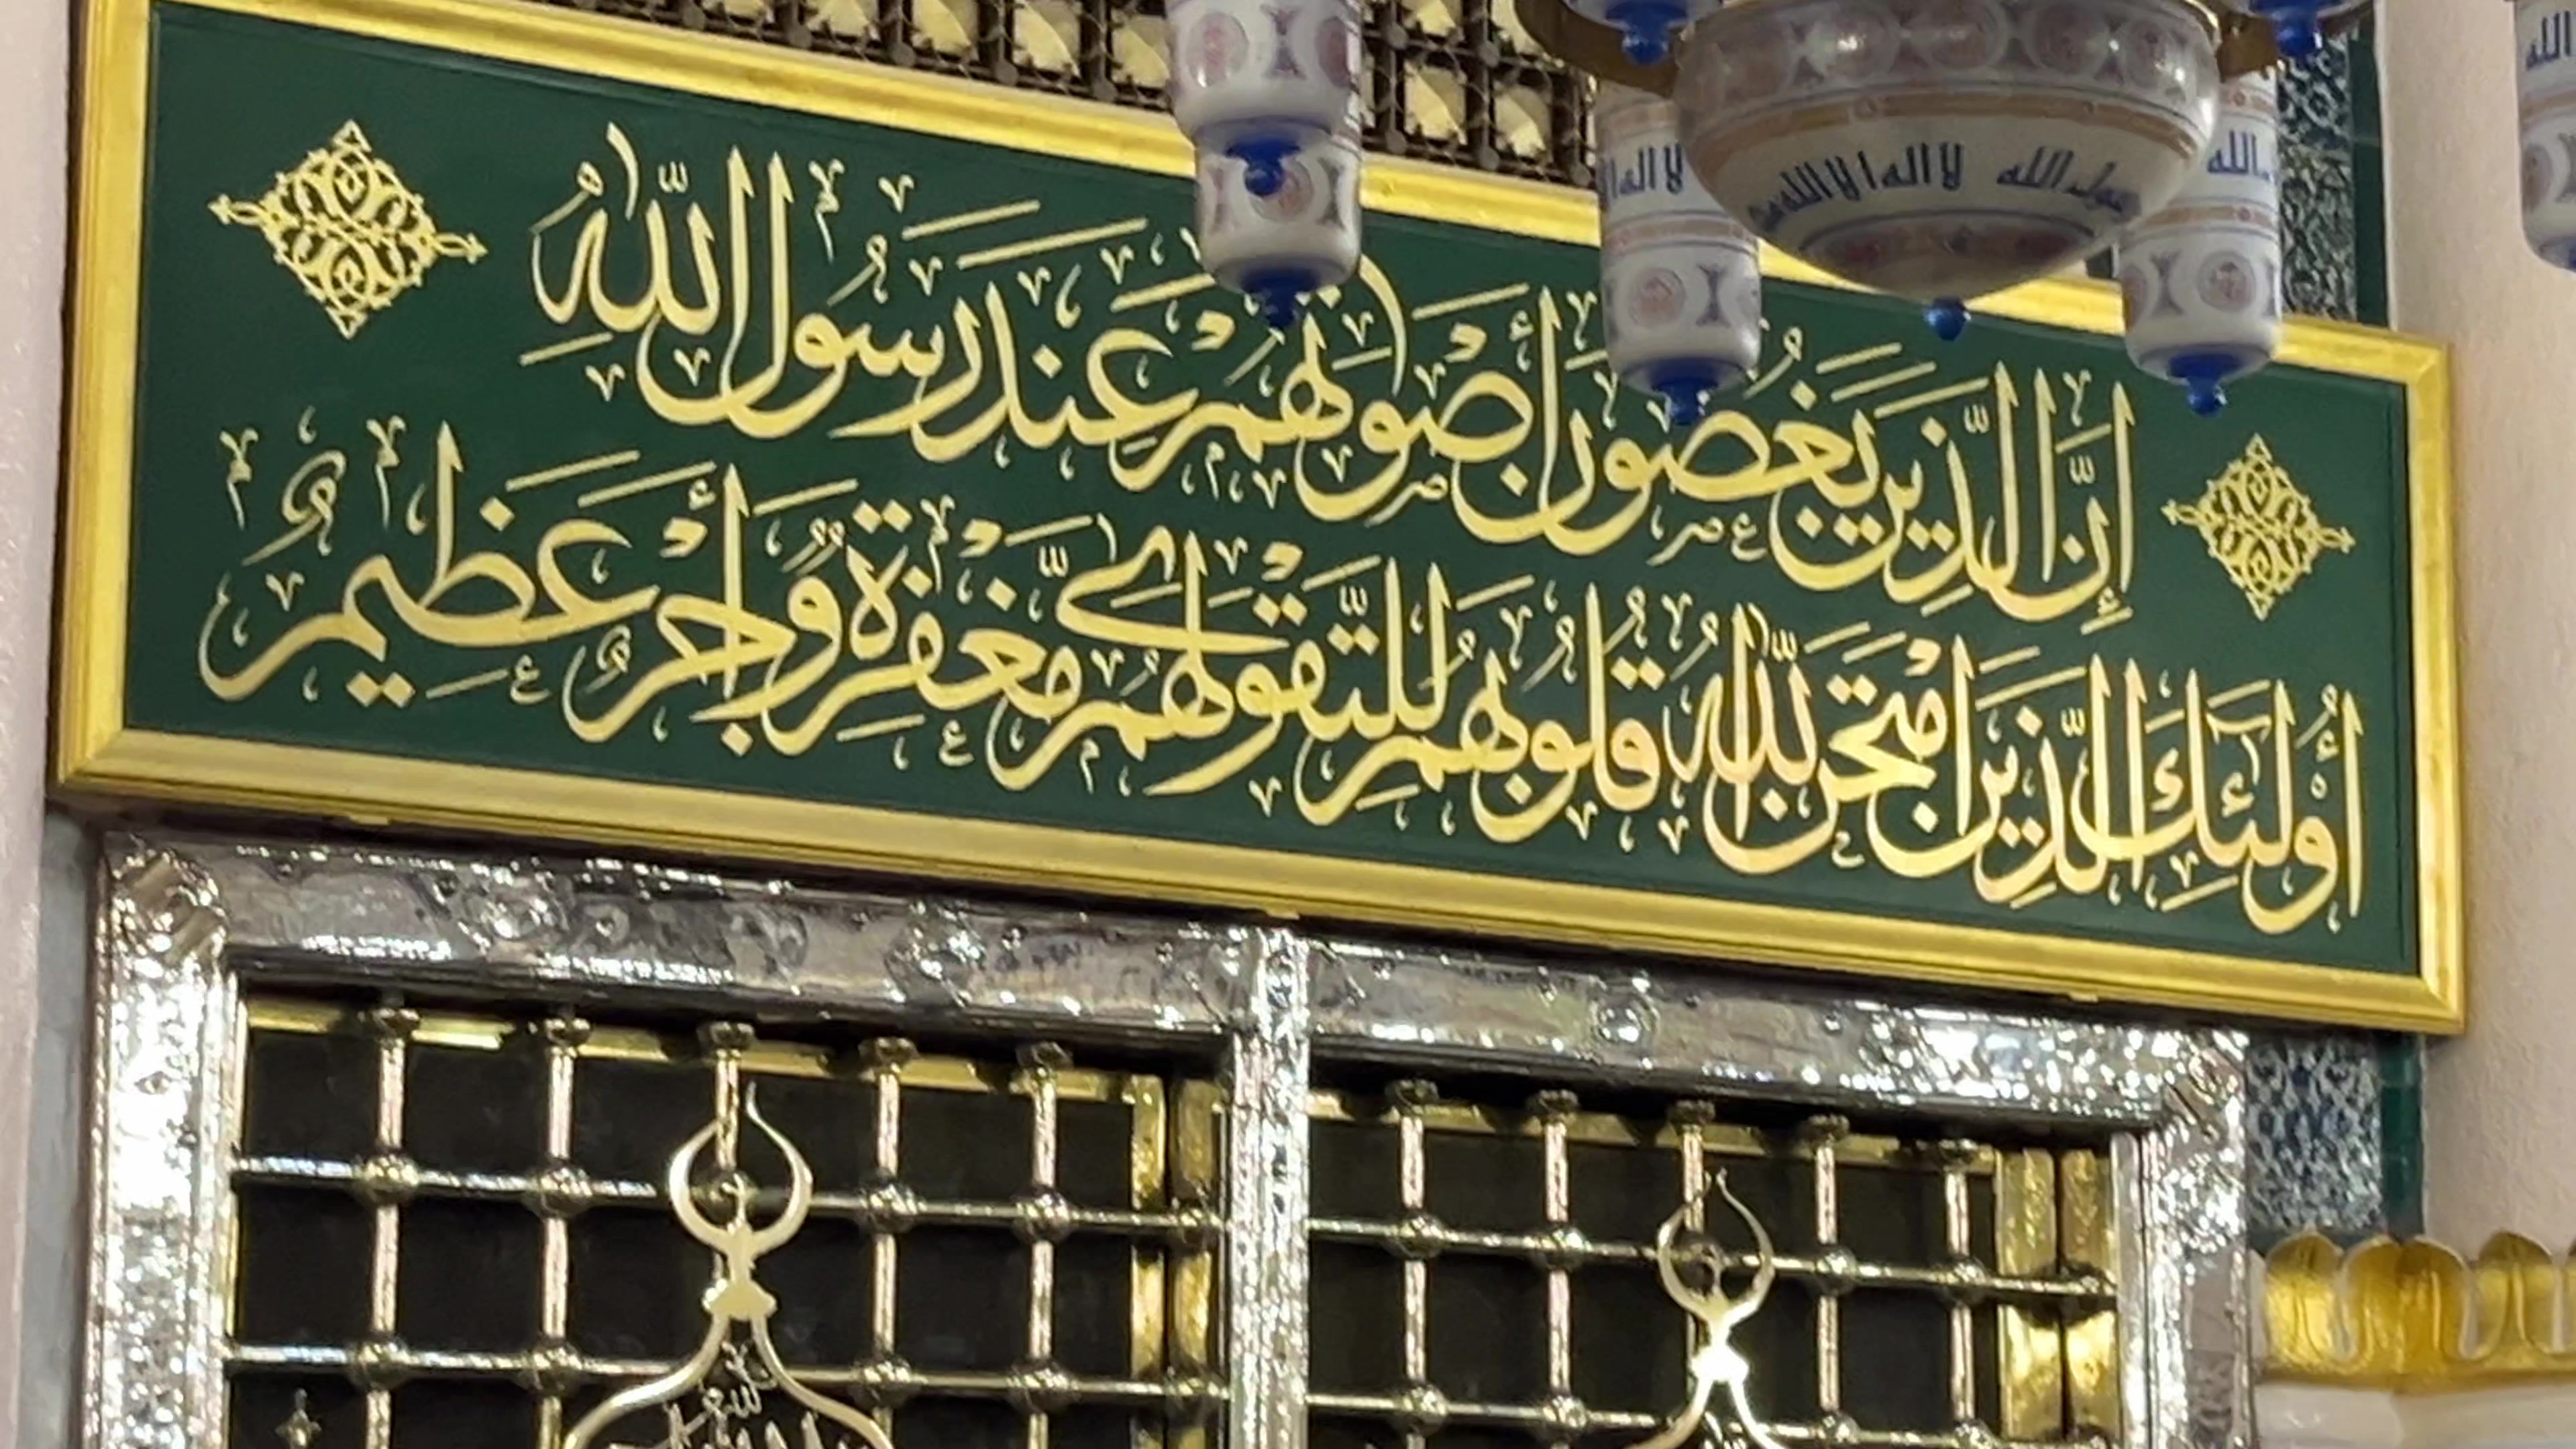 إِنَّ الَّذِينَ يَغُضُّونَ أَصْوَاتَهُمْ عِندَ رَسُولِ اللَّهِ
أُوْلَئِكَ الَّذِينَ امْتَحَنَ اللَّهُ قُلُوبَهُمْ لِلتَّقْوَى لَهُم مَّغْفِرَةٌ وَأَجْرٌ عَظِيمٌ
لا اله الا الله
رسول الله